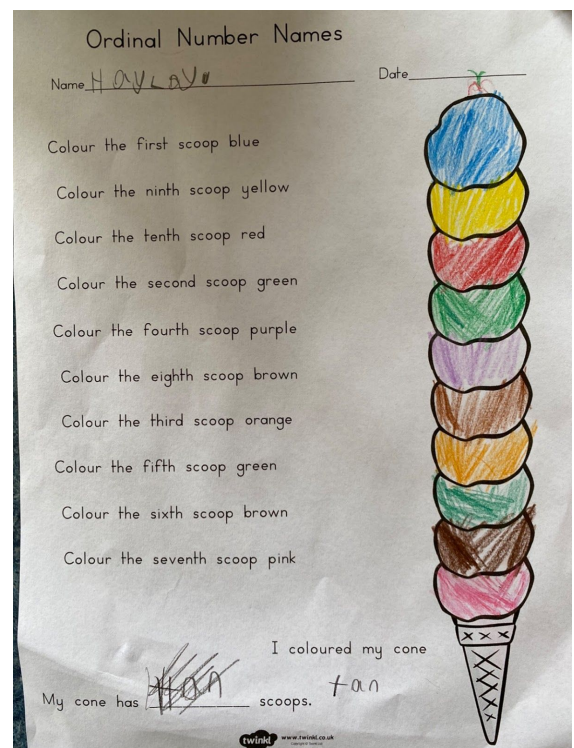 Ordinal Number Names
Name HAYLAY Date
Colour the first scoop blue
Colour the ninth scoop yellow
Colour the tenth scoop red
Colour the second scoop green
Colour the fourth scoop purple
Colour the eighth scoop brown
Colour the third scoop orange
Colour the fifth scoop green
Colour the sixth scoop brown
Colour the seventh scoop pink
I coloured my cone
tan
My cone has scoops.
twinkl www.twinkl.co.uk